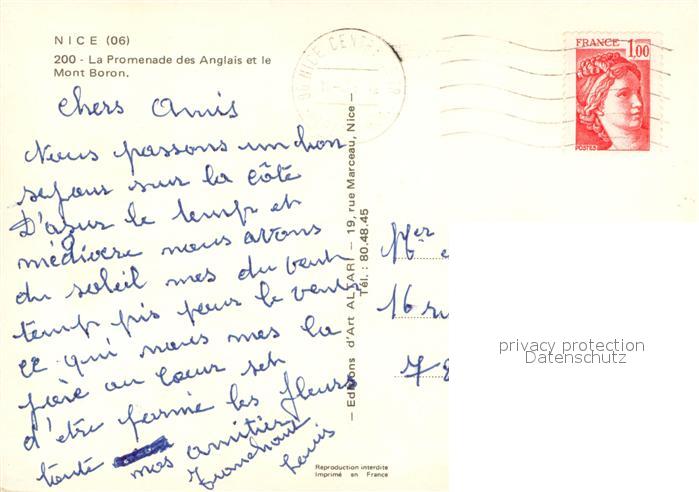 NICE (06)
200 - La Promenade des Anglais et le
Mont Boron.
chers Amis
Nous passons un bon
sejour sur la côte
D'asur le temp et
médiocre nous avons
du soleil mes du vent
temp pis pour le vent
ce qui nous mes la
joie au coeur set
d'etre parmé les fleurs
toute mos amitier
Louis
NICE CENTRE
— Editions d'Art ALTARI — 19, rue Marceau, Nice —
Tél. : 80.48.45
FRANCE 1,00
POSTES
Mer
16 ru
privacy protection
Datenschutz
Reproduction interdite
Imprimé en France